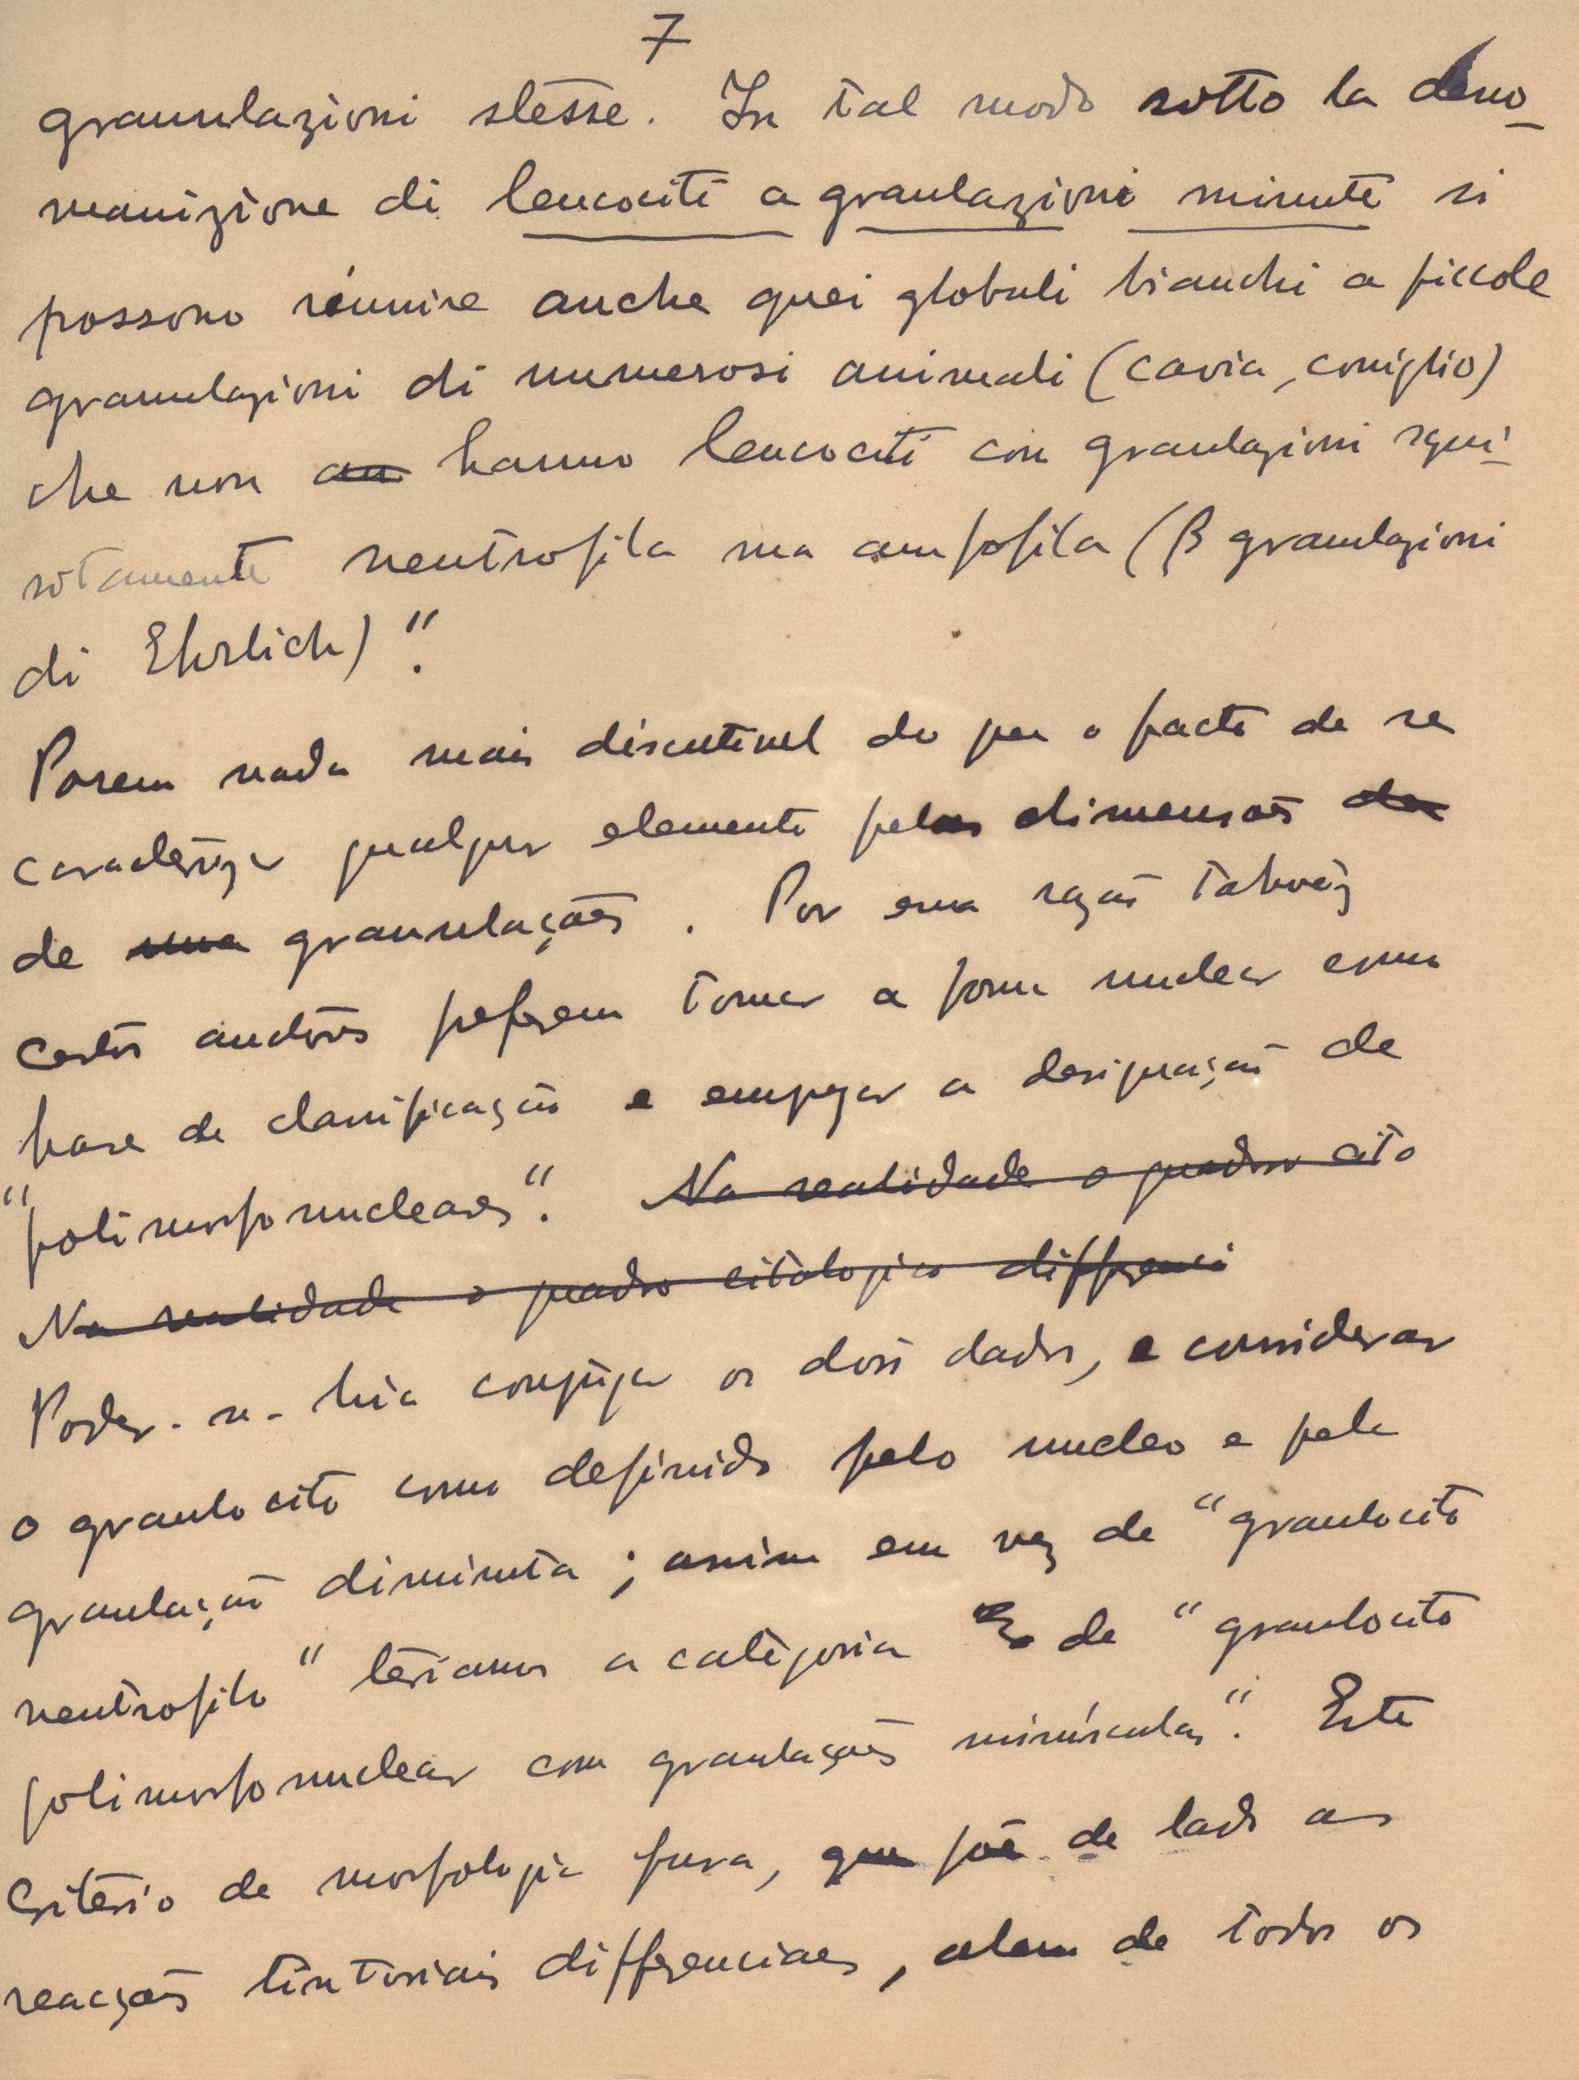 7
granulazioni stesse. In tal modo sotto la deno-
manizione di leucociti a granlazioni minute si
possono riunire anche quei globuli bianchi a piccole
granulazioni di numerosi animali (cavia, coniglio)
che non an hanno leucociti con granlazioni squi-
sitamente neutrofila ma amfofila (β granlazioni
di Ehrlich)".
Porem nada mais discutivel do que o facto de se
caracterizar qualquer elemento pelas dimensões das
de uma granulações. Por essa razão talvêz
certos auctores preferem tomar a forma nuclear como
base de classificação e empregar a designação de
"polimorfonucleares". Na realidade o quadro cito
Na realidade o quadro citologico differenci
Poder-se-hia conjugar os dois dados, e considerar
o granlocito como definido pelo nucleo e pela
granlação diminuta; assim em vez de "granlocito
neutrofilo" teriamos a categoria de "granlocito
polimorfonuclear com granlações minúsculas". Este
Critério de morfologia pura, que põe de lado as
reacções tintoriais differenciaes, alem de todos os